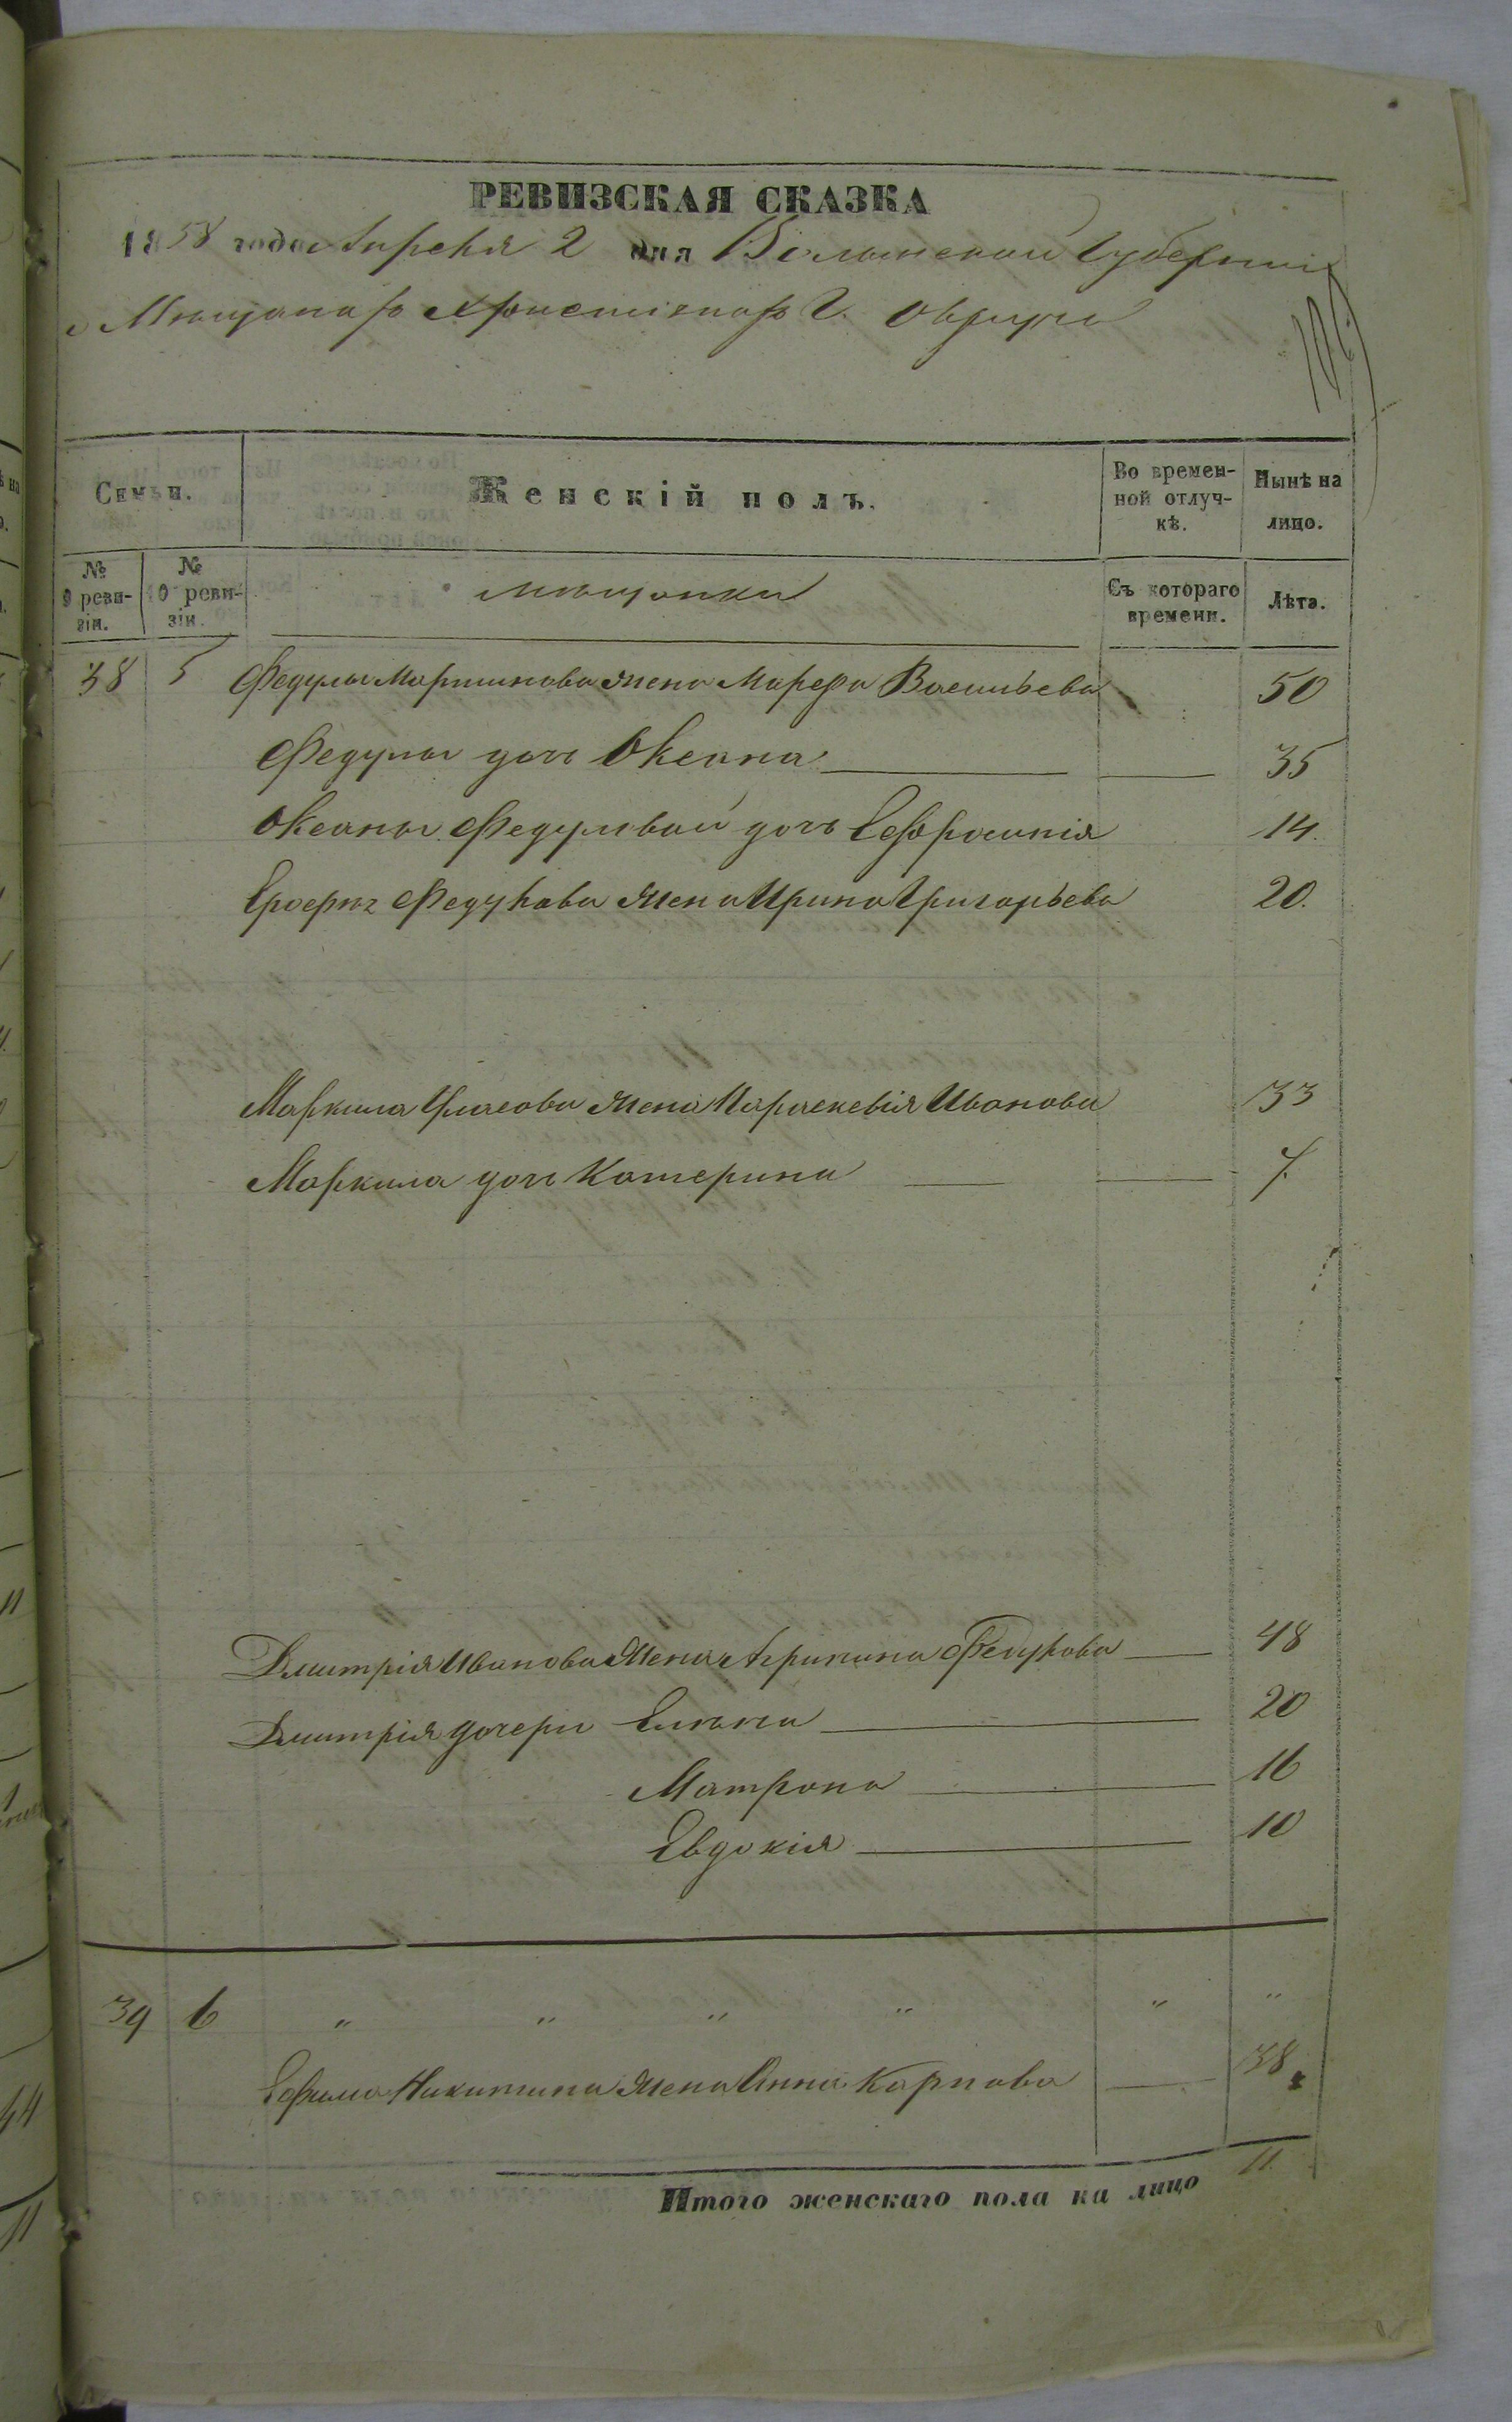 РЕВИЗСКАЯ СКАЗКА
1858 года Апреля 2 дня Волынской Губерніи
о Мещанахъ Христіянахъ Г. Овруча
Семьи. Женскій полъ. Во временной отлучкѣ. Нынѣ на лицо.
№ 9 ревизіи. № 10 ревизіи. Мещанки Съ котораго времени. Лѣта.
38 5 Федула Мартинова жена Марфа Васильева 50
Федулы дочь Оксана 35
Оксаны Федуловой дочь Ефросинія 14.
Ерофея Федулова жена Ирина Григорьева 20.
Маркила Власова жена Параскевія Иванова 33
Маркила дочь Катерина 7.
Дмитрія Иванова жена Агрипина Федулова 48
Дмитрія дочери Елена 20
Матрона 16
Евдокія 10
39 6 " " " " " "
Ефима Никитина жена Анна Карпова 38
Итого женскаго пола на лицо 11.